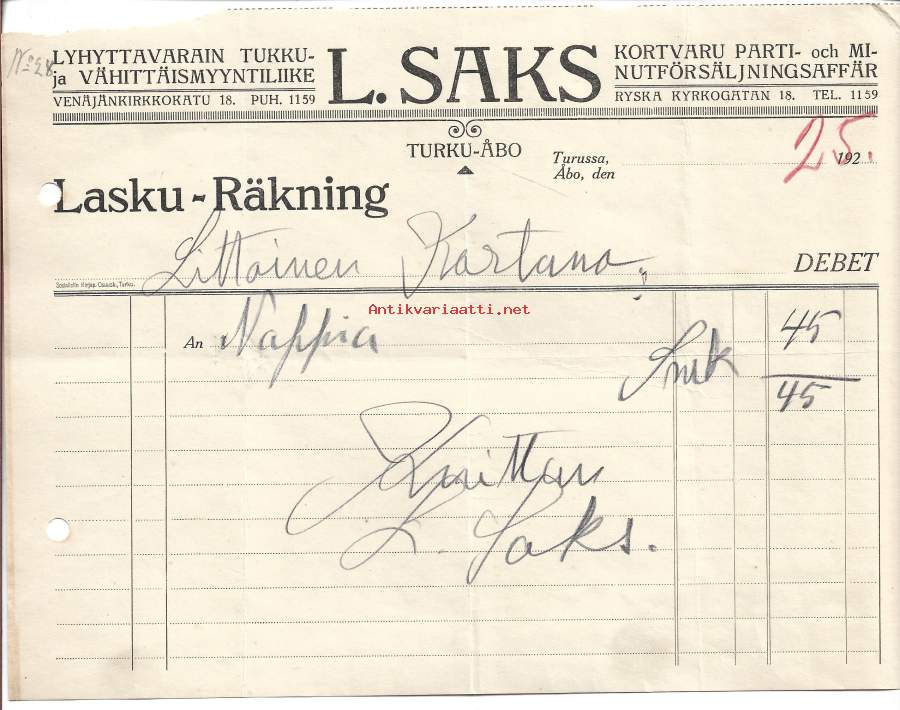 No 28.
LYHYTTAVARAIN TUKKU-
ja VÄHITTÄISMYYNTILIIKE
VENÄJÄNKIRKKOKATU 18. PUH. 1159
L. SAKS
KORTVARU PARTI- och MI-
NUTFÖRSÄLJNINGSAFFÄR
RYSKA KYRKOGATAN 18. TEL. 1159
TURKU-ÅBO
Turussa,
Åbo, den
192
25.
Lasku - Räkning
Littoinen Kartano
DEBET
Sosialistin Kirjap. Osuusk., Turku.
Antikvariaatti.net
An Nappia 45
Smk 45
Kuittan
L. Saks.